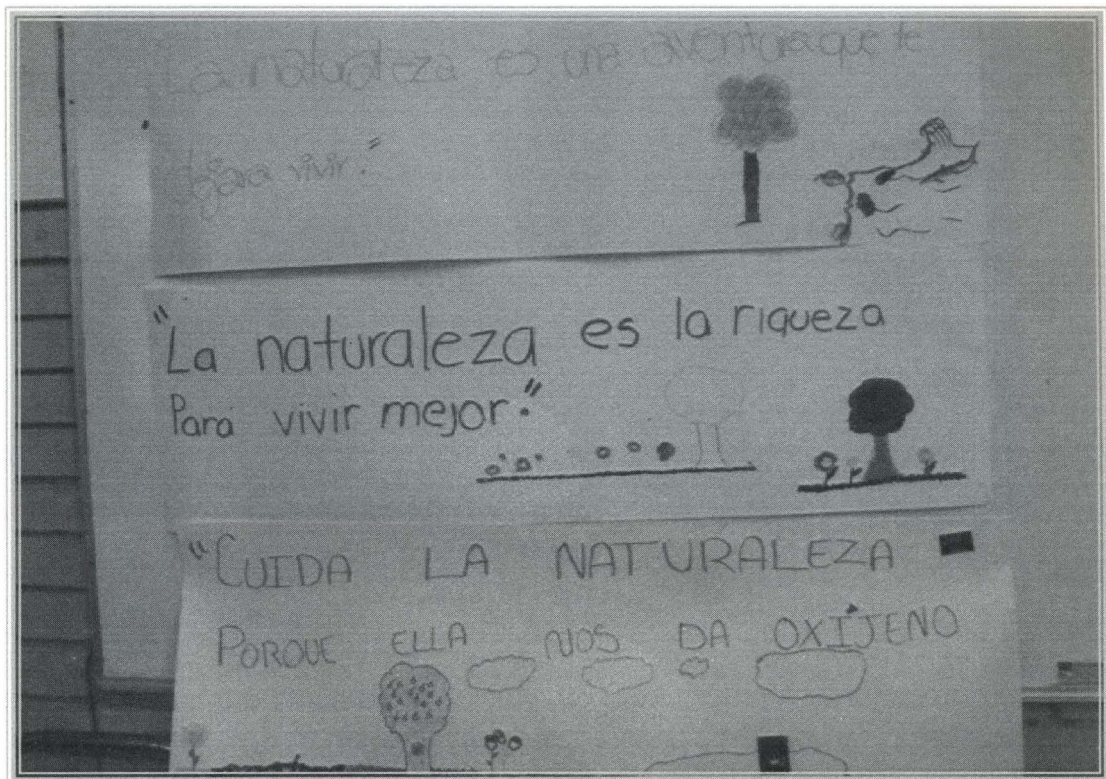 La naturaleza es una aventura que te
dejara vivir."
"La naturaleza es la riqueza
Para vivir mejor."
"CUIDA LA NATURALEZA
PORQUE ELLA NOS DA OXÍJENO